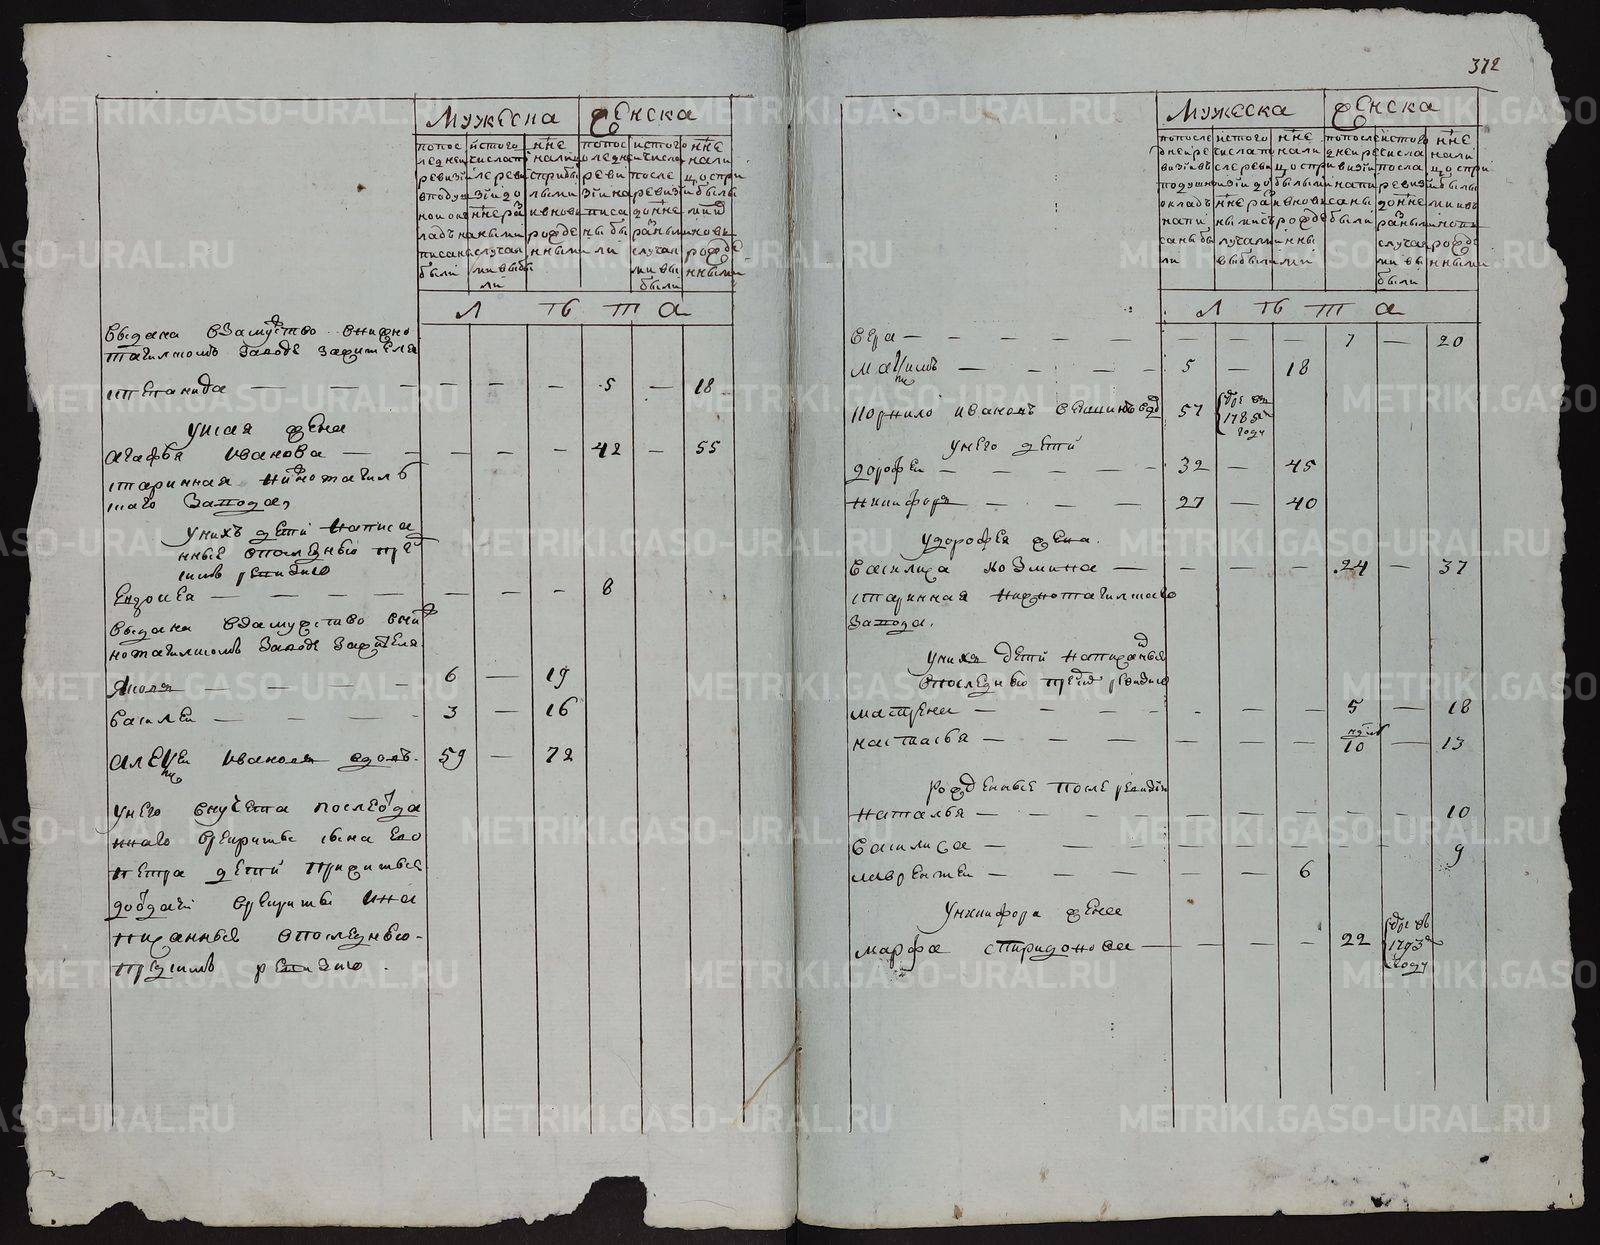 372
Мужеска
женска
попос
ледней
ревизiи
вподуш
ной ок
ладъ на
писаны
были
истого
числа по
сле реви
зiи до
нне ра
ными
случая
ми выбы
ли
нне
нали
сприбы
лыми
ивновь
рожде
нными
попос
ледней
реви
зiи на
писа
ны бы
ли
истого
числа
после
ревизiи
до нне
раными
случая
ми вы
были
нне
нали
цо спри
былы
ми и
новь
рожде
нными
Л ѣ т а
выдана взамужство внижно
тагилскомъ заводе зажителя
степанида — — — — — — 5 — 18
уисая жена
агафья иванова — — — — — 42 — 55
старинная нижнотагилъ
скаго завода,
унихъ дети написа
нные впоследнюю пре
репизию
Евдокея — — — — — — — 8
выдана взамужство вниж
нотагилскомъ заводе зажителя.
Яковъ — — — — 6 — 19
василей — — — — 3 — 16
алексеи ивановъ вдовъ. 59 — 72
унего внучета после
ннаго врекруты сына его
петра дети прижитые
доотдачи врекруты ина
писанные впоследнюю
ревизию.
Мужеска
женска
попосле
дней ре
визiи въ
подушно
окладъ
напи
саны бы
ли
истого
числа по
сле реви
зiи до
нне ра
ными
случаями
выбыли
нне
нали
цо спри
былыми
ивновь
рожде
нны
ми
попосле
дней ре
визiи
напи
саны
были
истого
числа
посла
ревизiи
до нне
раными
случая
ми вы
были
нне
нали
цо спри
былы
ми ивъ
новь
рожде
нными
Л ѣ т а
вера — — — — — — — 7 — 20
Максимъ — — — — 5 — 18
Корнило ивановъ 57 1785 году
унего дети
дорофеи — — — — 32 — 45
никифоръ — — — 27 — 40
удорофея жена.
василиса козмина — — — — 24 — 37
старинная нижнотагилскаго
завода.
унихъ дети написаные
впоследнюю пред ревизию
матрена — — — — — — 5 — 18
настасья — — — — — — 10 — 13
рожденные после ревизiи
наталья — — — — — — — — 10
василиса — — — — — — — — 9
лаврентеи — — — — — — 6
уникифора жена
марфа спиридонова — — — — 22 1793 году
METRIKI.GASO-URAL.RU